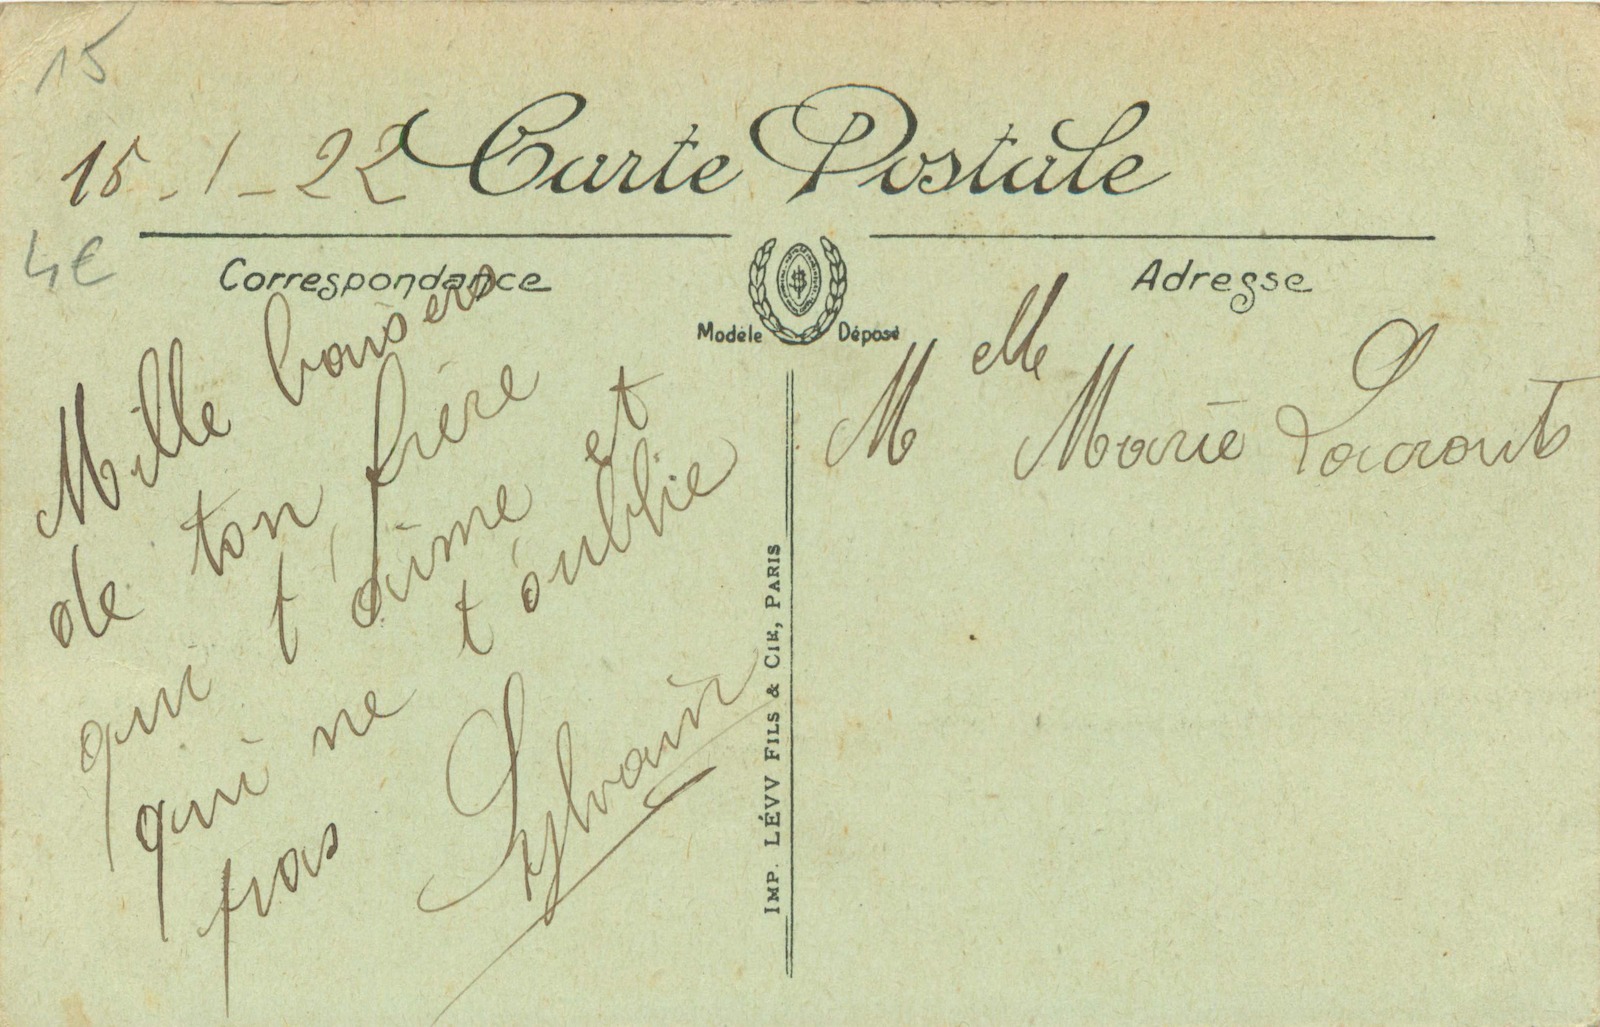 15
15 - 1 - 22
Carte Postale
4€
Correspondance
Modèle Déposé
Adresse
Mille baisers
de ton frère
qui t'aime et
qui ne t'oublie
pas
Sylvain
Melle Marie
IMP. LÉVY FILS & CIE, PARIS